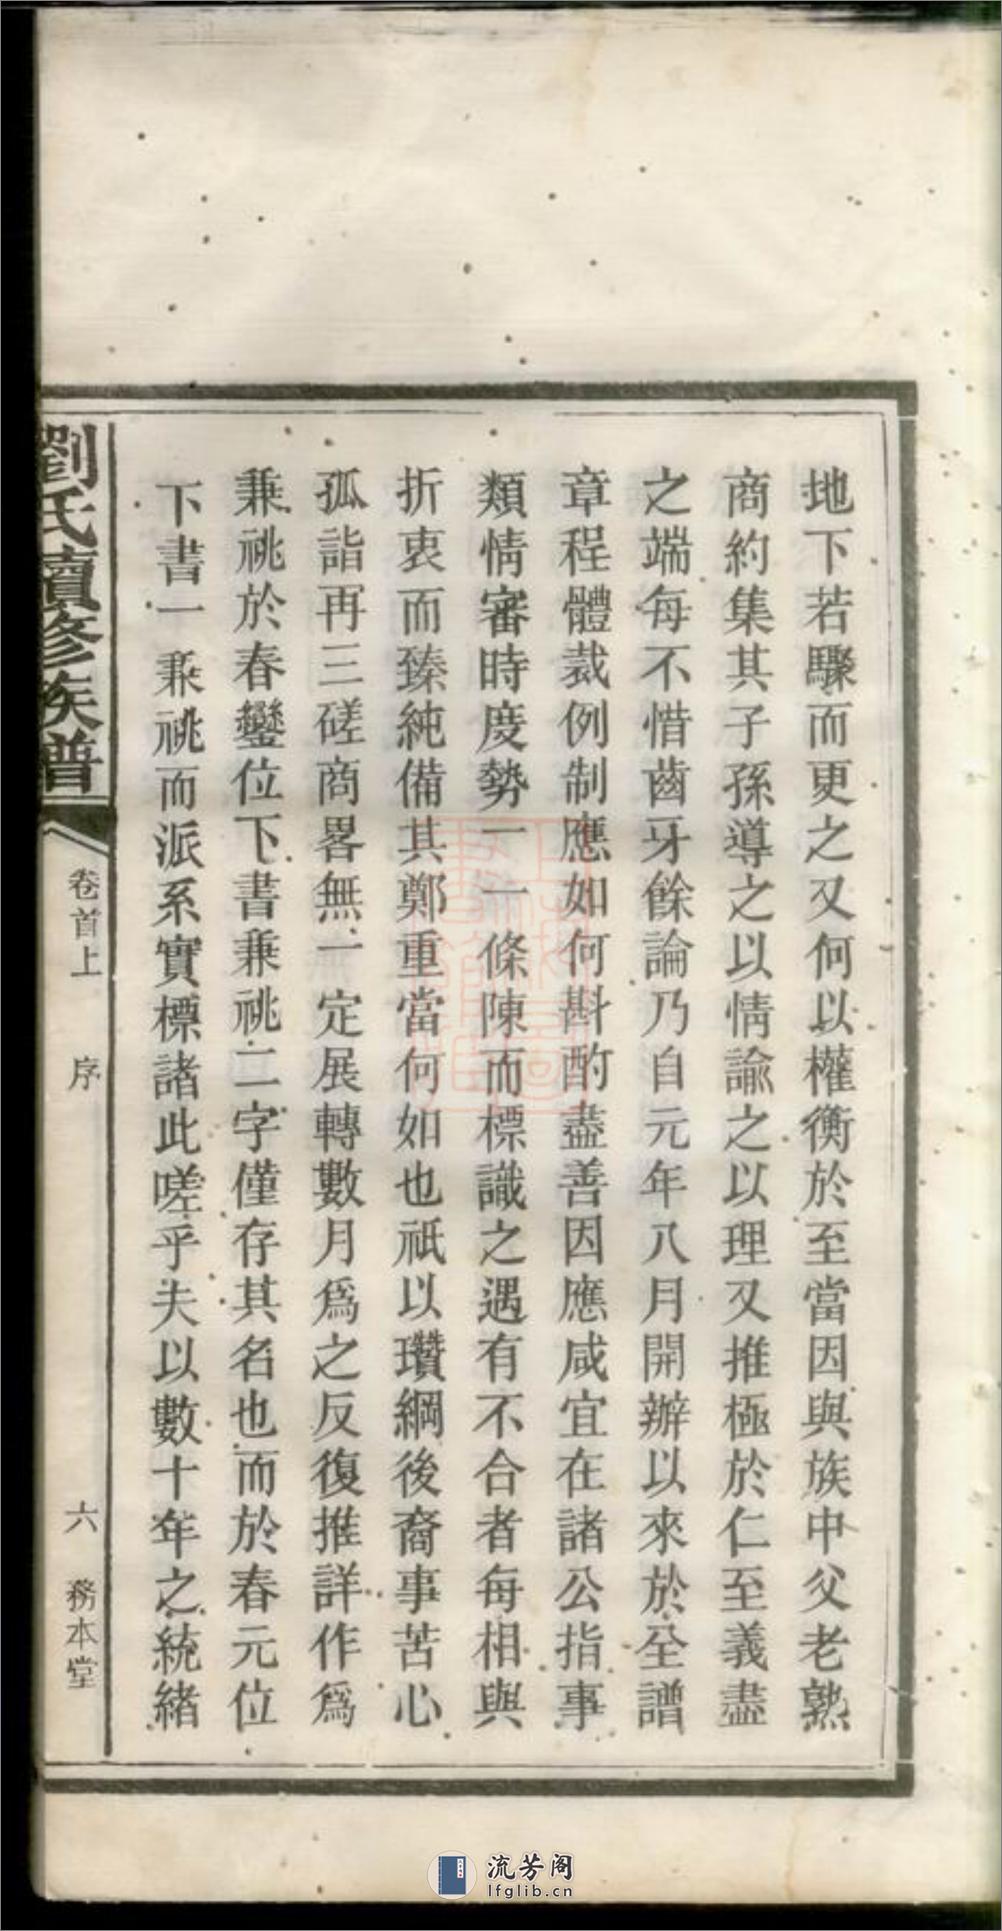 地下若驟而更之又何以權衡於至當因與族中父老熟
商約集其子孫導之以情諭之以理又推極於仁至義盡
之端每不惜齒牙餘論乃自元年八月開辦以來於全譜
章程體裁例制應如何斟酌盡善因應咸宜在諸公指事
類情審時度勢一一條陳而標識之遇有不合者每相與
折衷而臻純備其鄭重當何如也祇以瓚綱後裔事苦心
孤詣再三磋商畧無一定展轉數月爲之反復推詳作爲
兼祧於春鑾位下書兼祧二字僅存其名也而於春元位
下書一兼祧而派系實標諸此嗟乎夫以數十年之統緒
劉氏續修族譜
卷首上
序
六
務本堂
流芳阁
lfglib.cn